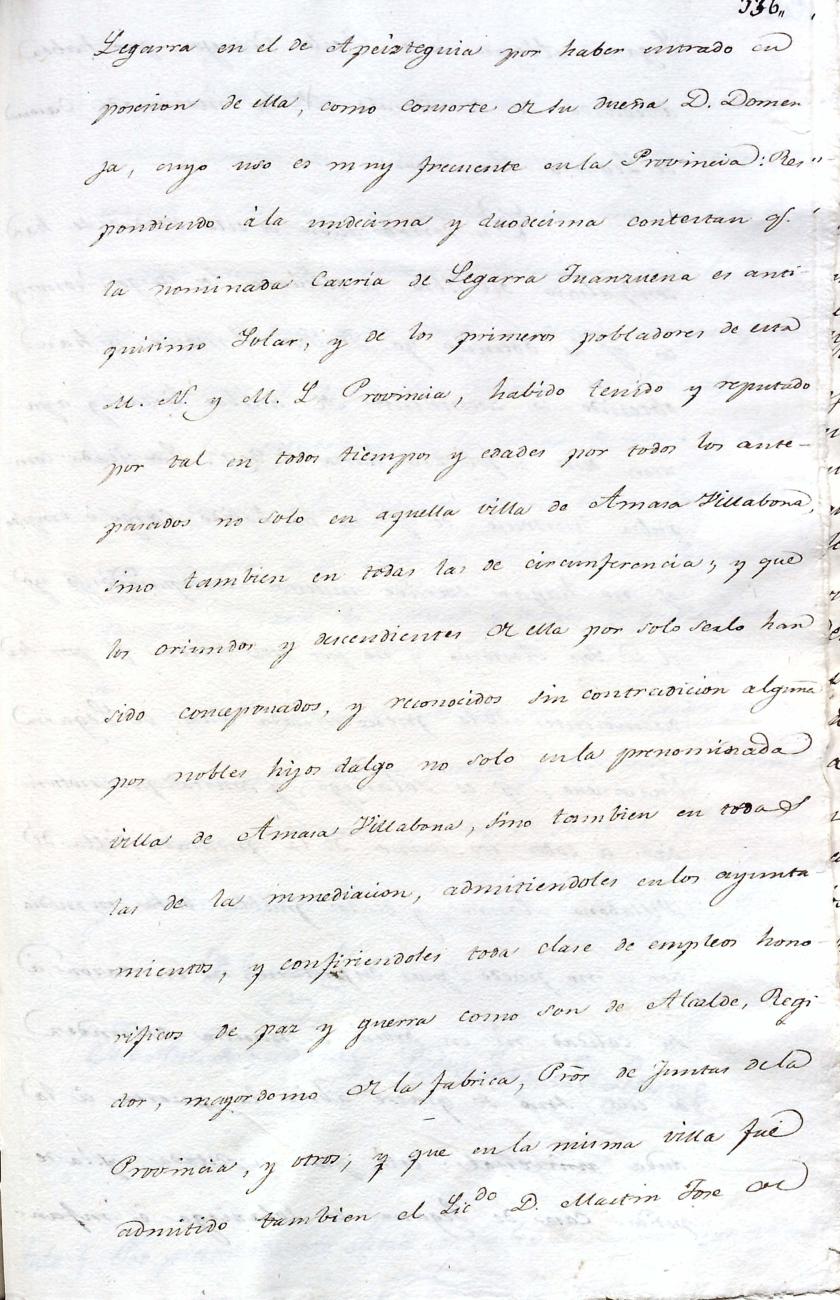 336,,
Legarra en el de Apeizteguia por haber entrado en
posesion de ella, como consorte de su dueña D. Domen
ja, cuyo uso es muy frecuente en la Provincia: Res"
pondiendo à la undecima y duodecima contestan q.
la nominada Caseria de Legarra Juanzuena es anti-
quisimo Solar, y de los primeros pobladores de esta
M. N. y M. L Provincia, habido tenido y reputado
por tal en todos tiempos y edades por todos los ante-
pasados no solo en aquella villa de Amasa Villabona,
sino tambien en todas las de circunferencia, y que
los oriundos y descendientes de ella por solo serlo han
sido conceptuados, y reconocidos sin contradicion alguna
por nobles hijos dalgo no solo en la prenominada
villa de Amasa Villabona, sino tambien en todas
las de la inmediacion, admitiendoles en los ayunta
mientos, y confiriendoles toda clase de empleos hono-
rificos de paz y guerra como son de Alcalde, Regi
dor, mayordomo de la fabrica, Pror de Juntas de la
Provincia, y otros; y que en la misma villa fue
admitido tambien el Licdo D. Martin Jose de